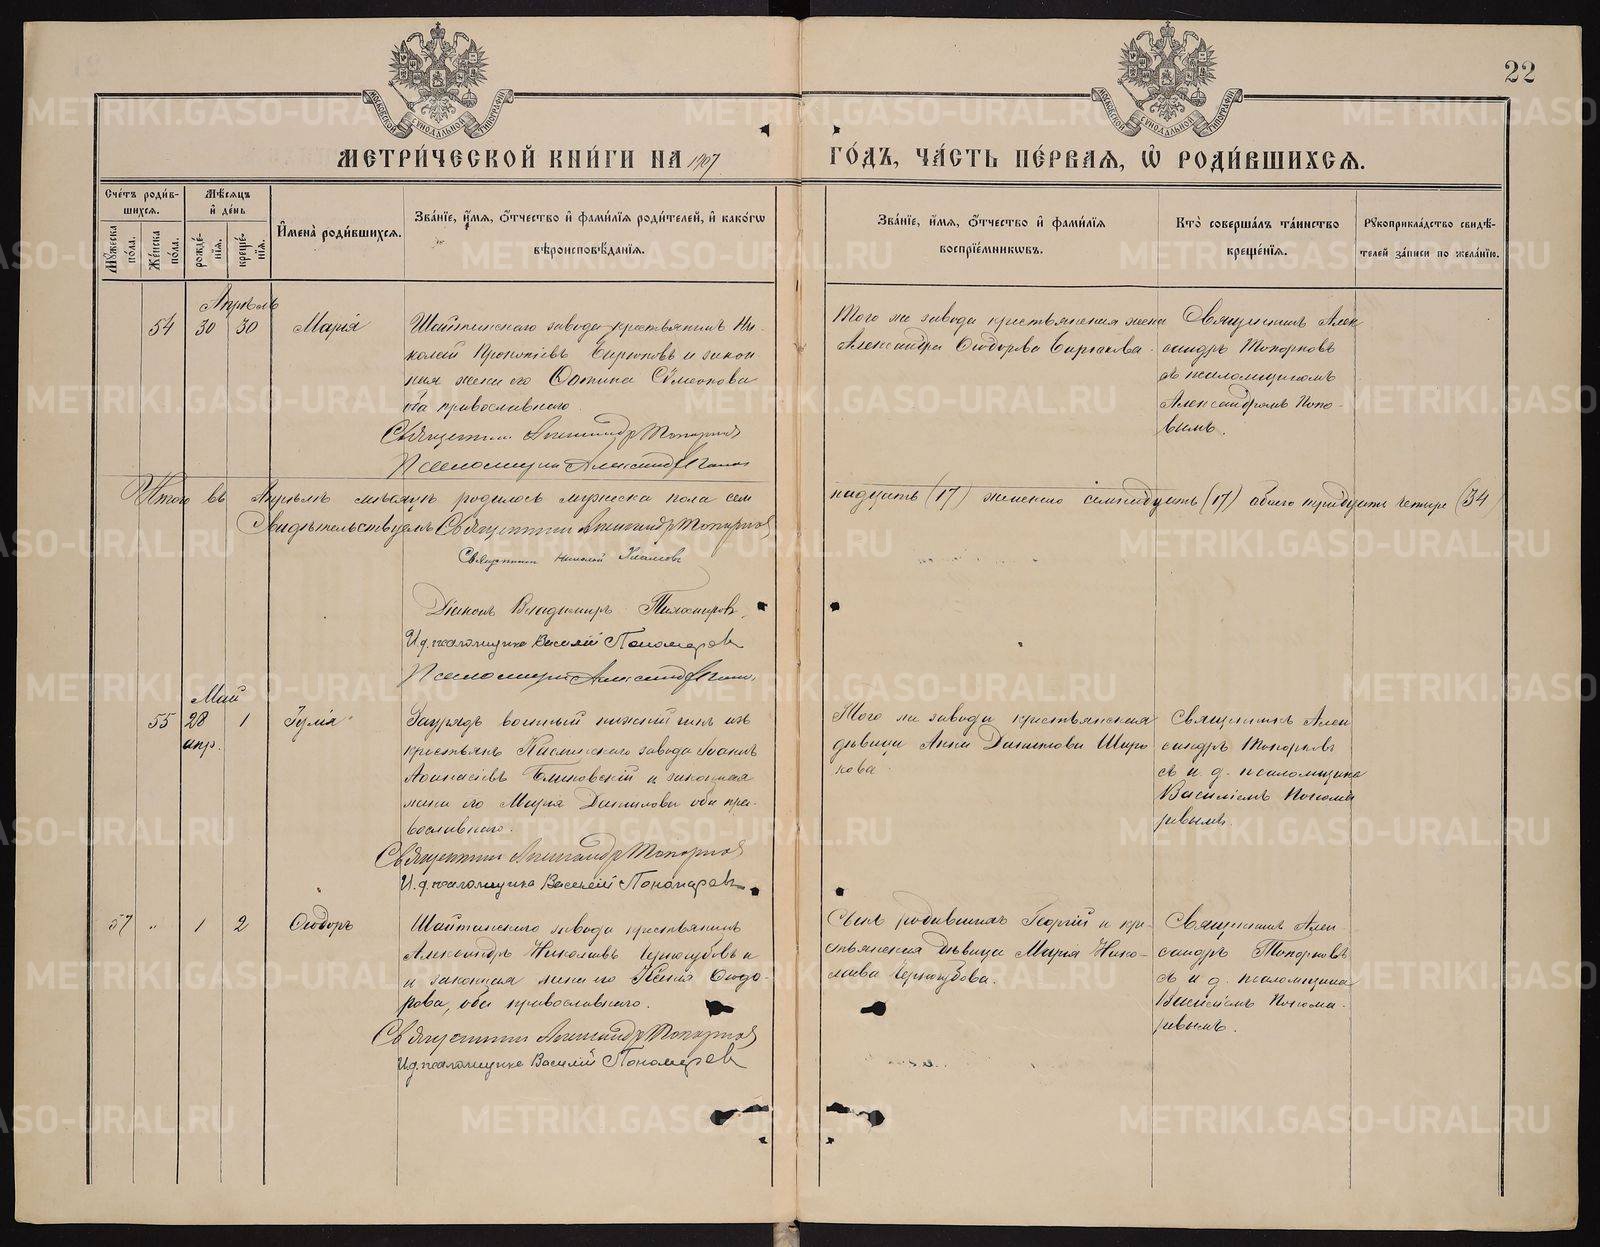 22
МЕТРИ́ЧЕСКОЙ КНИ́ГИ НА 1907
ГО́ДЪ, ЧА́СТЬ ПЕ́РВАЯ, Ѿ РОДИ́ВШИХСЯ.
Сче́тъ роди́в-
шихся.
Мѣ́сяцъ
и҆ де́нь
Му́жеска
по́ла.
Же́нска
по́ла.
рожде́-
нїя.
креще́-
нїя.
И҆мена̀ роди́вшихся.
Зва́нїе, и҆́мя, ѻ҆́тчество и҆ фами́лїя роди́телей, и҆ како́гѡ
вѣроисповѣ́данїя.
Зва́нїе, и҆́мя, ѻ҆́тчество и҆ фами́лїя
воспрїе́мниковъ.
Кто̀ соверша́лъ та́инство
креще́нїя.
Рꙋкоприкла́дство свидѣ́-
телей за́писи по жела́нїю.
Апрѣль
54 30 30 Марія
Шайтанскаго завода крестьянинъ Ни-
колай Прокопіевъ и закон-
ная жена его Симеонова
оба православнаго.
Священникъ Александръ Топорковъ
Псаломщикъ Александръ Поповъ
Того же завода крестьянская жена
Александра Ѳеодорова
Священникъ Алек-
сандръ Топорковъ
съ псаломщикомъ
Александромъ Попо-
вымъ.
Итого въ Апрѣлѣ мѣсяцѣ родилось мужеска пола сем
надцать (17) женскаго семнадцать (17) обоего тридцать четыре (34)
Свидѣтельствуемъ Священникъ Александръ Топорковъ
Священникъ Николай
Діаконъ Владимиръ Тихомировъ
И. д. псаломщика Василій Пономаревъ
Псаломщикъ Александръ Поповъ
Май
55 28 1 Іулія
апр.
Заурядъ военный нижній чинъ изъ
крестьянъ Каслинскаго завода Іоаннъ
Аѳанасіевъ и законная
жена его Марія Данилова оба пра-
вославнаго.
Священникъ Александръ Топорковъ
И. д. псаломщика Василій Пономаревъ
Того же завода крестьянская
дѣвица Анна Данилова Широ
кова
Священникъ Алек
сандръ Топорковъ
съ и. д. псаломщика
Василіемъ Понома
ревымъ.
57 " 1 2 Ѳеодоръ
Шайтанскаго завода крестьянинъ
Александръ Николаевъ Чернозубовъ
и законная жена его Ксенія Ѳеодо-
рова, оба православнаго.
Священникъ Александръ Топорковъ
И. д. псаломщика Василій Пономаревъ
Сынъ родившихъ Георгій и кре-
стьянская дѣвица Марія Нико-
лаева Чернозубова.
Священникъ Алек
сандръ Топорковъ
съ и. д. псаломщика
Василіемъ Понома-
ревымъ.
METRIKI.GASO-URAL.RU